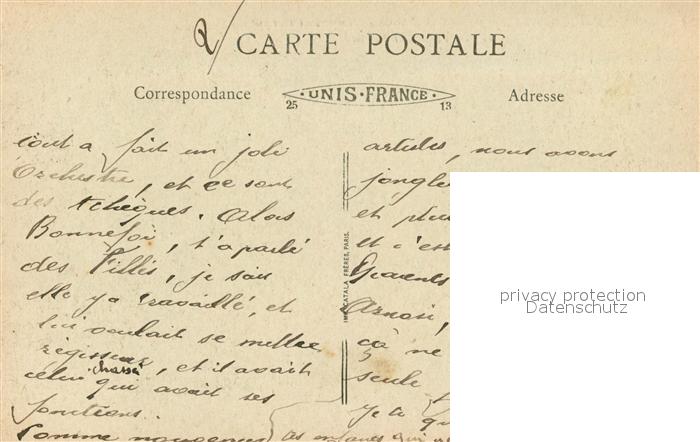 2/
CARTE POSTALE
Correspondance
UNIS-FRANCE
25 13
Adresse
tout a fait un joli
Orchestre, et ce sont
des tchèques. Alors
Bonnefoi, t'a parlé
des Fillis, je sais
elle y a travaillé, et
lui voulait se mettre
régisseur, et il avait
chassé
celui qui avait ses
fonctions.
Comme
artistes, nous avons
et
et c'est
ça ne
seule
Il y a
IMP. CATALA FRÈRES, PARIS.
privacy protection
Datenschutz